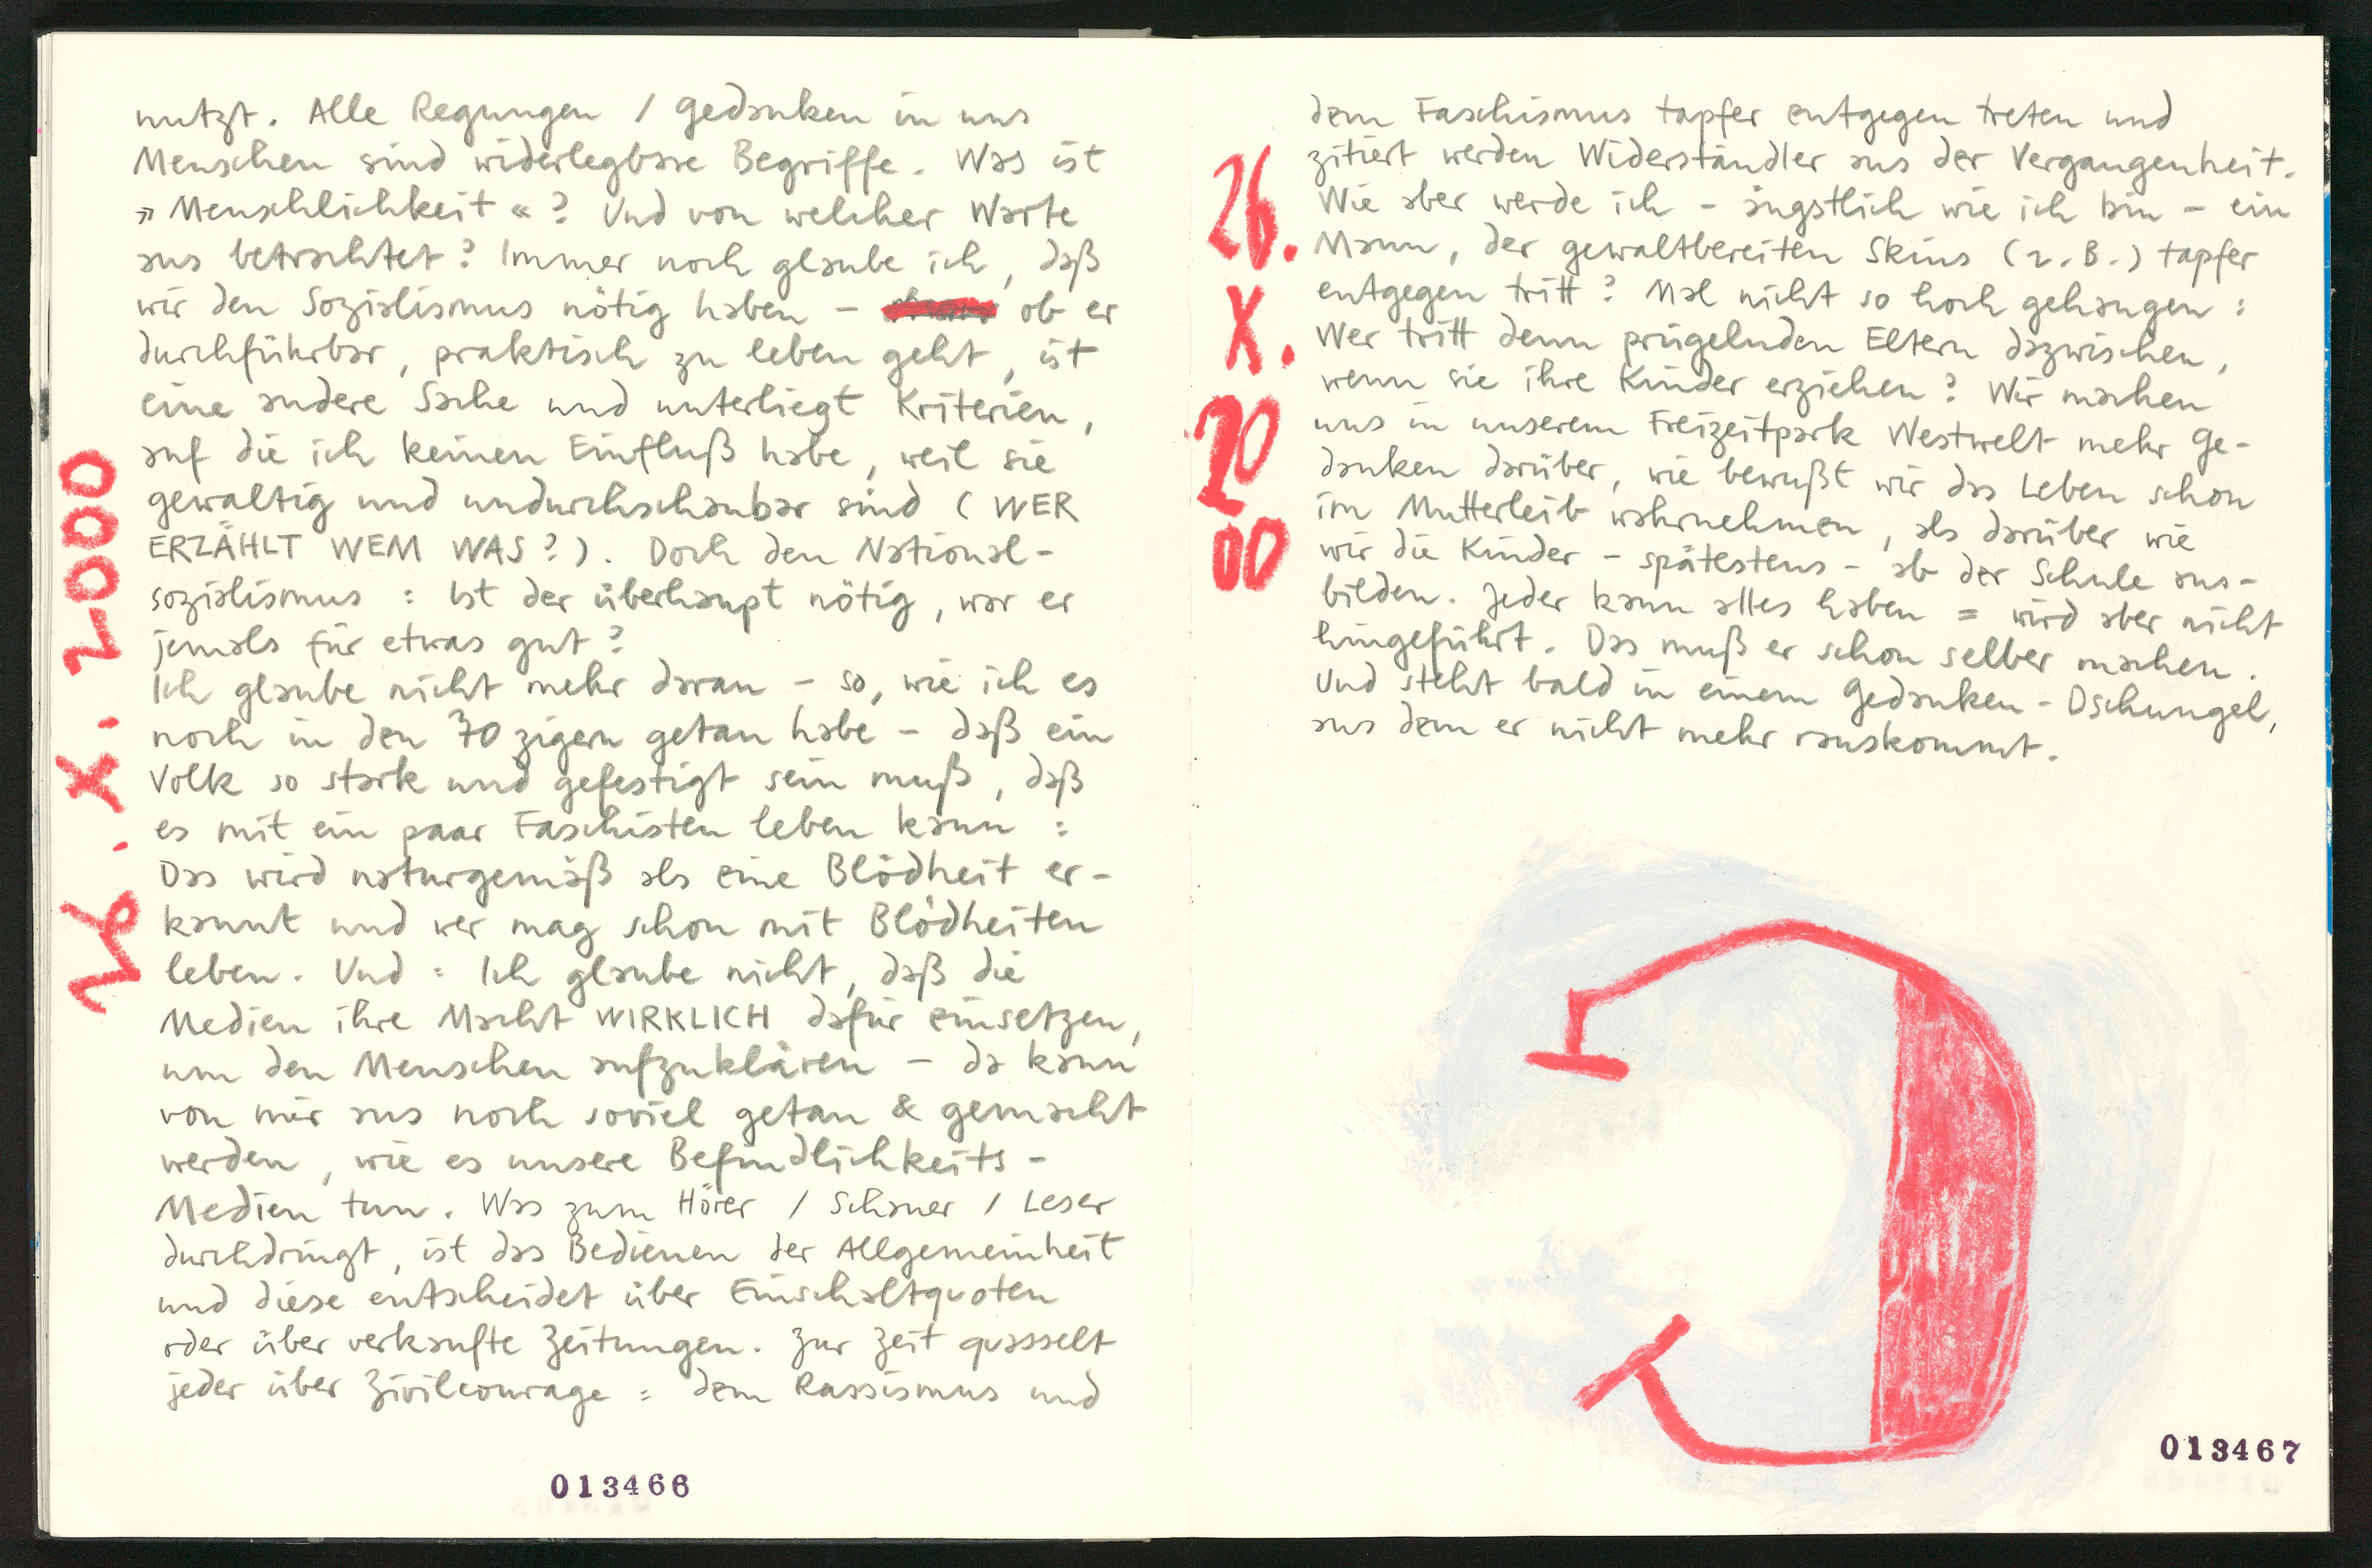 26. X. 2000
nutzt. Alle Regungen / Gedanken in uns
Menschen sind widerlegbare Begriffe. Was ist
»Menschlichkeit«? Und von welcher Warte
aus betrachtet? Immer noch glaube ich, daß
wir den Sozialismus nötig haben – ob er
durchführbar, praktisch zu leben geht, ist
eine andere Sache und unterliegt Kriterien,
auf die ich keinen Einfluß habe, weil sie
gewaltig und undurchschaubar sind (WER
ERZÄHLT WEM WAS?). Doch den National-
sozialismus: Ist der überhaupt nötig, war er
jemals für etwas gut?
Ich glaube nicht mehr daran – so, wie ich es
noch in den 70zigern getan habe – daß ein
Volk so stark und gefestigt sein muß, daß
es mit ein paar Faschisten leben kann:
Das wird naturgemäß als eine Blödheit er-
kannt und wer mag schon mit Blödheiten
leben. Und: Ich glaube nicht, daß die
Medien ihre Macht WIRKLICH dafür einsetzen,
um den Menschen aufzuklären – da kann
von mir aus noch soviel getan & gemacht
werden, wie es unsere Befindlichkeits-
Medien tun. Was zum Hörer / Schauer / Leser
durchdringt, ist das Bedienen der Allgemeinheit
und diese entscheidet über Einschaltquoten
oder über verkaufte Zeitungen. Zur Zeit quasselt
jeder über Zivilcourage: dem Rassismus und
013466
26.
X.
20
00
dem Faschismus tapfer entgegen treten und
zitiert werden Widerständler aus der Vergangenheit.
Wie aber werde ich – ängstlich wie ich bin – ein
Mann, der gewaltbereiten Skins (z.B.) tapfer
entgegen tritt? Mal nicht so hoch gehangen:
Wer tritt denn prügelnden Eltern dazwischen,
wenn sie ihre Kinder erziehen? Wir machen
uns in unserem Freizeitpark Westwelt mehr Ge-
danken darüber, wie bewußt wir das Leben schon
im Mutterleib wahrnehmen, als darüber wie
wir die Kinder – spätestens – ab der Schule aus-
bilden. Jeder kann alles haben = wird aber nicht
hingeführt. Das muß er schon selber machen.
Und steht bald in einem Gedanken-Dschungel,
aus dem er nicht mehr rauskommt.
013467